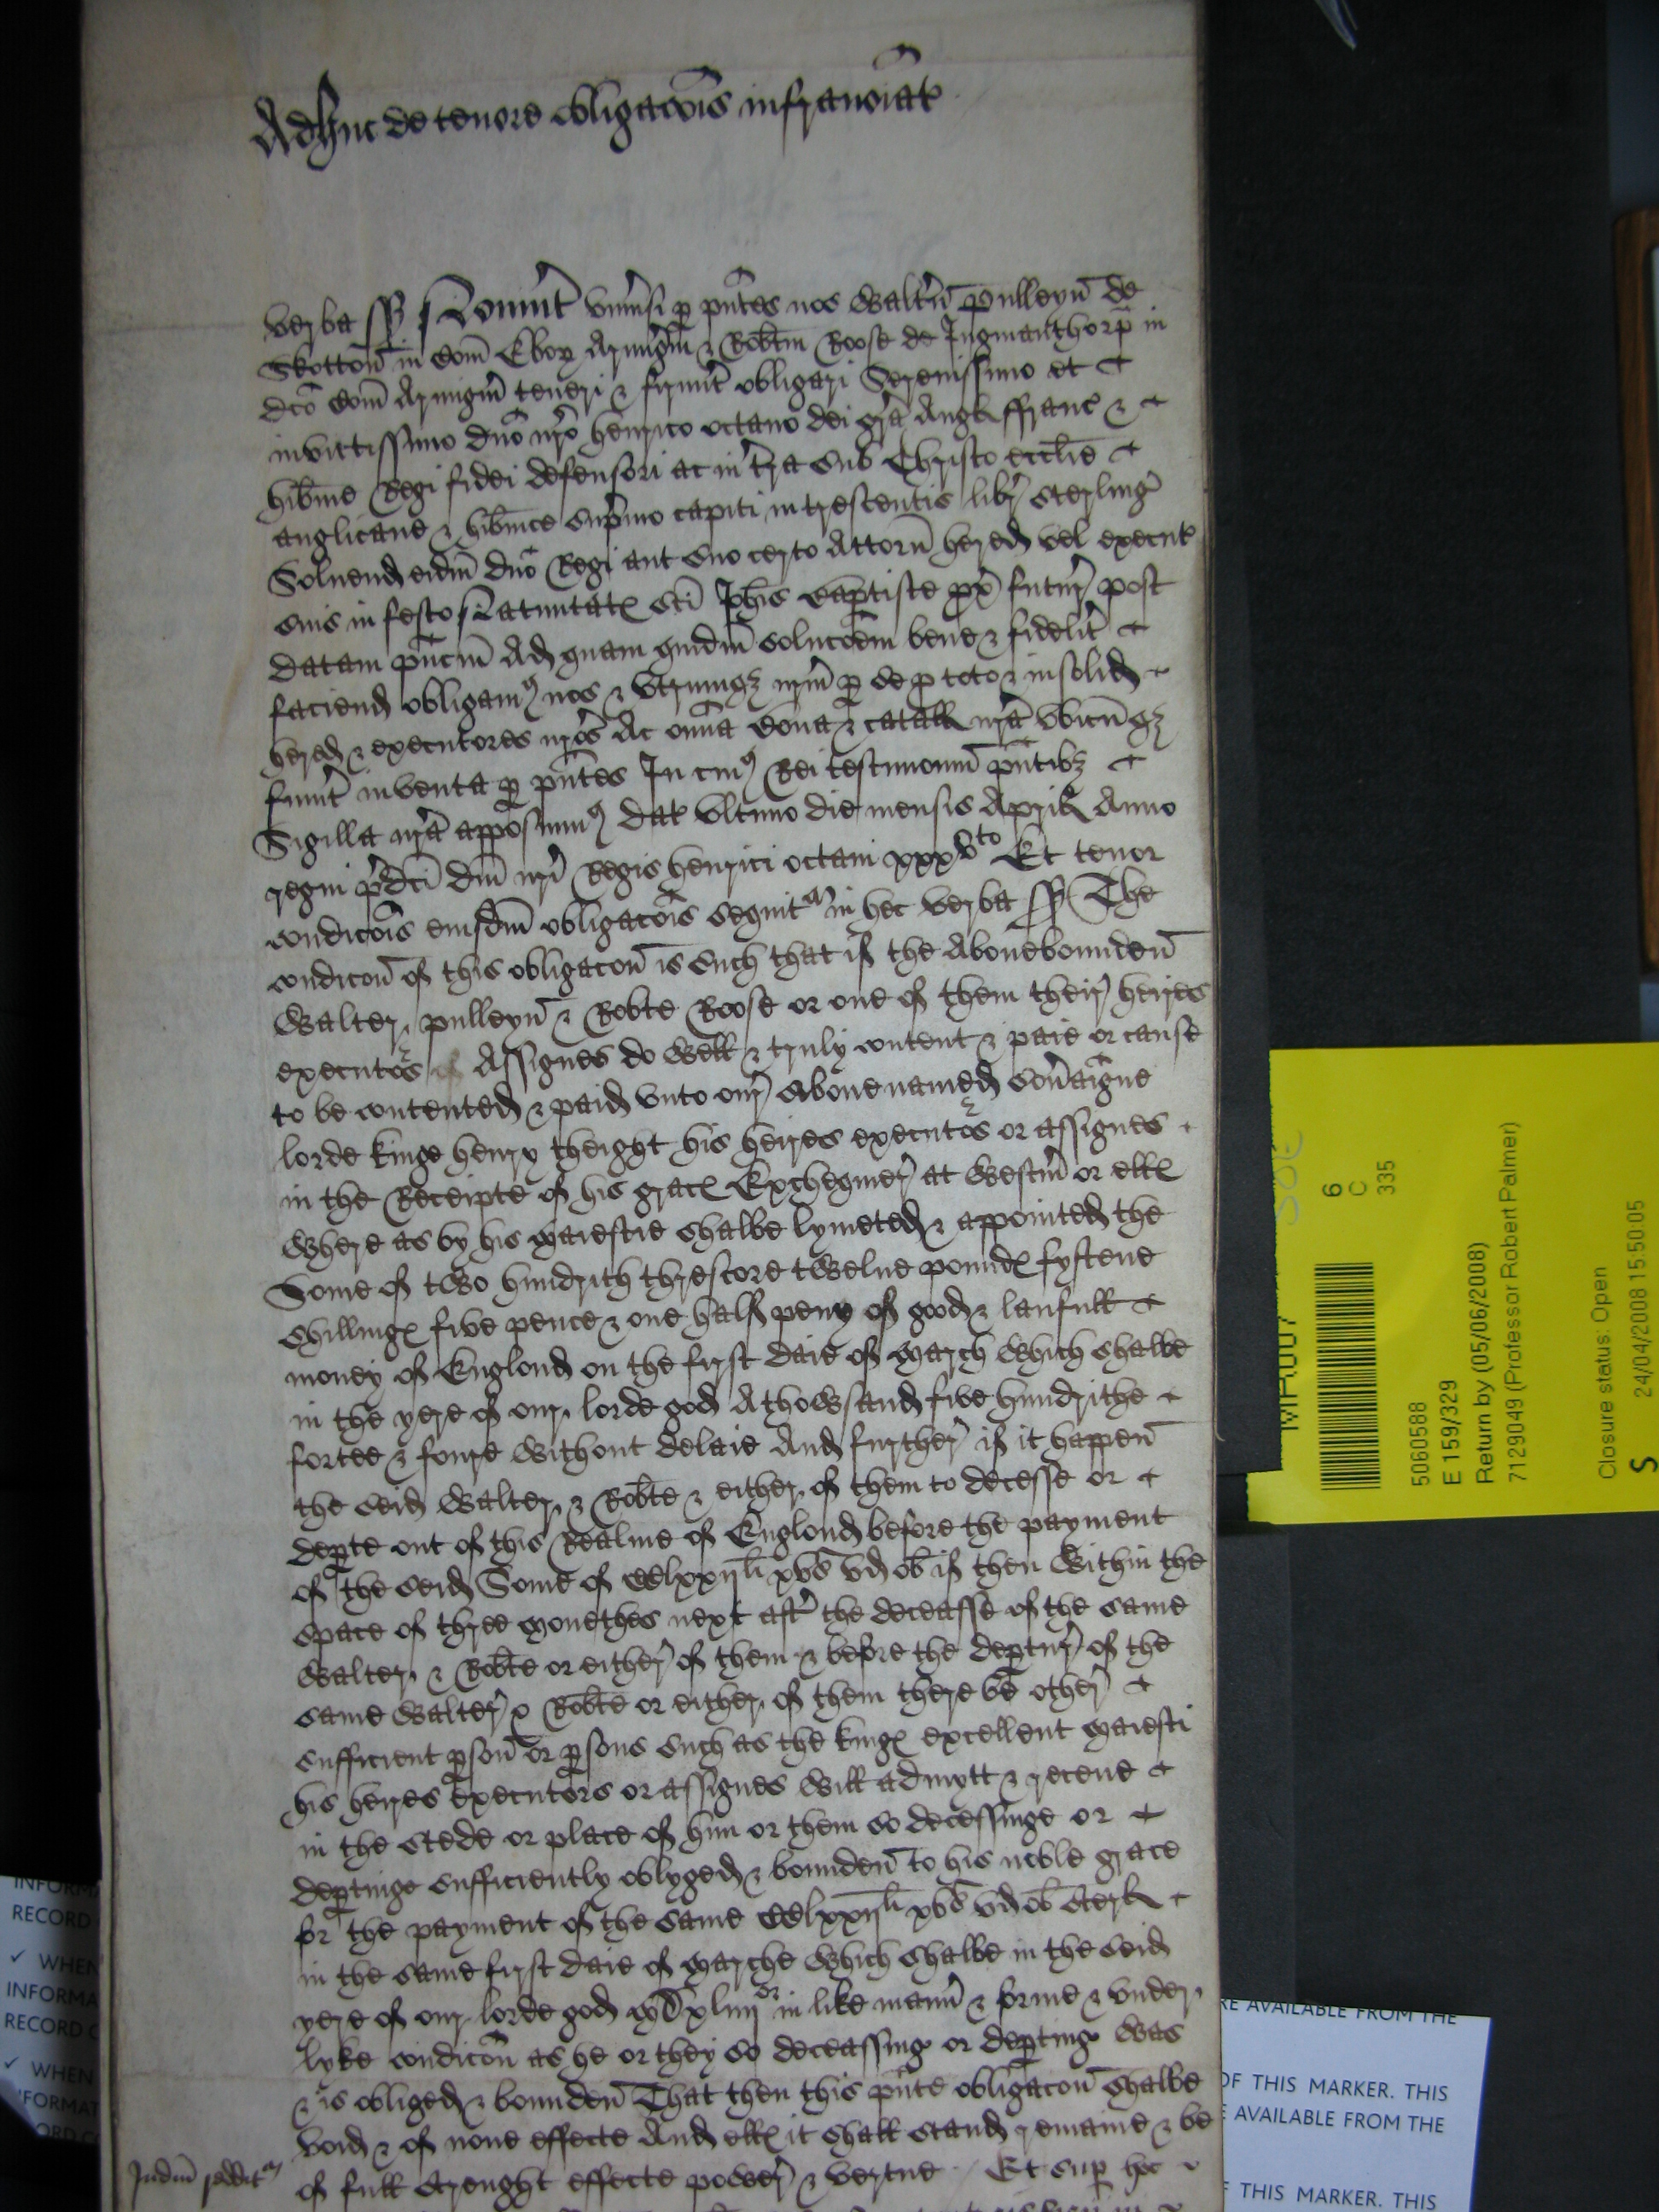 Adhuc de tenore obligac̄ois infranōiat
verba sß Nov̄int univ̄si p p̄ntes nos Walt̄m Pulleyn̄ de
Skotton̄ in Com̄ Ebor Armiḡm & Rob̄tm Roose de Ingmanthorp̄ in
dc̄o Com̄ Armigm̄ teneri & firmit̄ obligari Serenissimo et
invictissimo dn̄o nr̄o henrico octavo dei gr̄a Angł ffranc̄ &
hib̄nie Regi fidei defensori ac in t̄ra sub Christo eccl̄ie
anglicane & hib̄nice sup̄mo capiti in trescentis libr̄ sterlinḡ
Solvend eidm̄ dn̄o Regi aut suo certo Attorn̄ hered vel execut
suis in festo Natiuitat̄ Sc̄i Joh̄is Baptiste px̄ futur̄ post
datam p̄ncm̄ Ad quam quidm̄ soluc̄oem bene & fidelit̄
faciend obligam⁹ nos & utrumqȝ nr̄m p se p toto & in solid
hered & executores nr̄os Ac om̄ia bona & catalł nr̄a ubicūqȝ
fuint̄ inventa p p̄ntes In cui⁹ Rei testimoniū p̄ntibȝ
Sigilla nr̄a apposuim⁹ dat ultimo die mensis Aprił Anno
regni p̄dc̄i dn̄i nr̄i Regis henrici octavi xxxvto Et tenor
condic̄ois eiusdm̄ obligac̄ois sequitʳ in hec verba sß The
condicon̄ of this obligacon̄ is such that if the Abovebounden̄
Walter pulleyn̄ & Robte Roose or one of them their̄ heires
executōs Assignes do well & truly content & paie or cause
to be contented & paid unto our̄ abovenamed sov̄aigne
lorde kinge henry theight his heires executōs or assignes
in the Receipte of his grac̄ Exchequier̄ at Westm̄ or ellc̄
where as by his maiestie shalbe lymeted & appointed the
Some of two hundrith threscore twelve pounde fystene
shillinge five pence & one half peny of good & laufull
money of Englond on the first daie of march which shalbe
in the yere of our lorde god A thowsand five hundrithe
fortee & foure without delaie And further̄ if it happen̄
the seid Walter & Rob̄te & either of them to decesse or
depte out of this Realme of Englond before the payment
of the seid Some of cclxxijli xvs vd ob if then within the
space of three monethes next aft̄ the deceasse of the same
Walter & Rob̄te or either̄ of them & before the deptur̄ of the
same Walter̄ & Rob̄te or either of them there be other̄
sufficient pson̄ or psons such as the kinge excellent maiesti
his heires executors or assignes will admytt & receve
in the stede or place of him or them so decessinge or
deptinge sufficiently oblyged & bounden̄ to his noble grace
for the payment of the same cclxxijli xvs vd ob sterł
in the same first daie of marche which shalbe in the seid
yere of our lorde god mDxliiijor in like mann̄ & forme & under
lyke condicōn as he or they so deceassing or depting was
& is obliged & bounden̄ That then this p̄nte obligacon̄ shalbe
void & of none effecte And ellc̄ it shall stand remaine & be
of full strenght effecte power̄ & vertue Et sup hoc
Judm̄ redditʳ
6
C
335
5060588
E 159/329
Return by (05/06/2008)
7129049 (Professor Robert Palmer)
Closure status: Open
S 24/04/2008 15:50:05
RECORD
✓ WHEN
INFORMA
RECORD
✓ WHEN
AVAILABLE FROM THE
OF THIS MARKER. THIS
AVAILABLE FROM THE
THIS MARKER. THIS